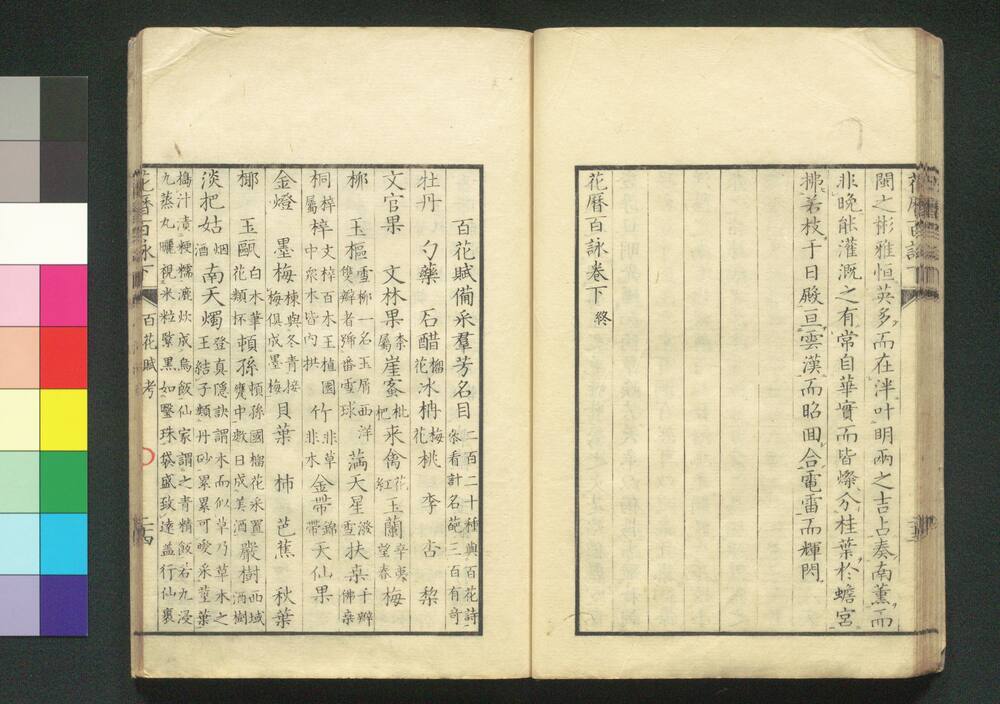 閩之彬雅恒英多而在泮叶明兩之吉占奏南薫而
非晚能灌溉之有常自華實而皆燦分桂葉於蟾宮
拂若枝于日殿亘雲漢而昭回合電雷而輝閃
花曆百詠卷下 終
百花賦備采羣芳名目 二百二十種與百花詩
參看計名葩三百有奇
牡丹 勺藥 石醋 榴花 冰柟 梅花 桃 李 杏 梨
文官果 文林果 柰屬 崖蜜 枇杷 來禽 花紅 玉蘭 辛夷望春 梅
柳 玉樞 雪柳一名玉屑西洋 雙辧者號番雪球 滿天星 潑雪 扶桒 千辧佛桒
桐 梓屬 梓 文梓百木王植園中衆木皆內拱 竹 非草非木 金帶 錦帶 天仙果
金燈 墨梅 楝與冬青接梅俱成墨梅 貝葉 柿 芭蕉 秋葉
椰 玉甌 白木筆花類杯 頓孫 頓孫國榴花采置甕中數日成美酒 嚴樹 西域酒樹
淡把姑 烟酒 南天燭 登真隱訣謂木而似草乃草木之王結子類丹砂累累可喫采莖葉
搗汁漬粳糯漉炊成烏飯仙家謂之青精飯若九浸
九蒸九曬視米粒緊黑如瑿珠袋盛致遠葢行仙裹
花曆百詠下
百花賦考
二四